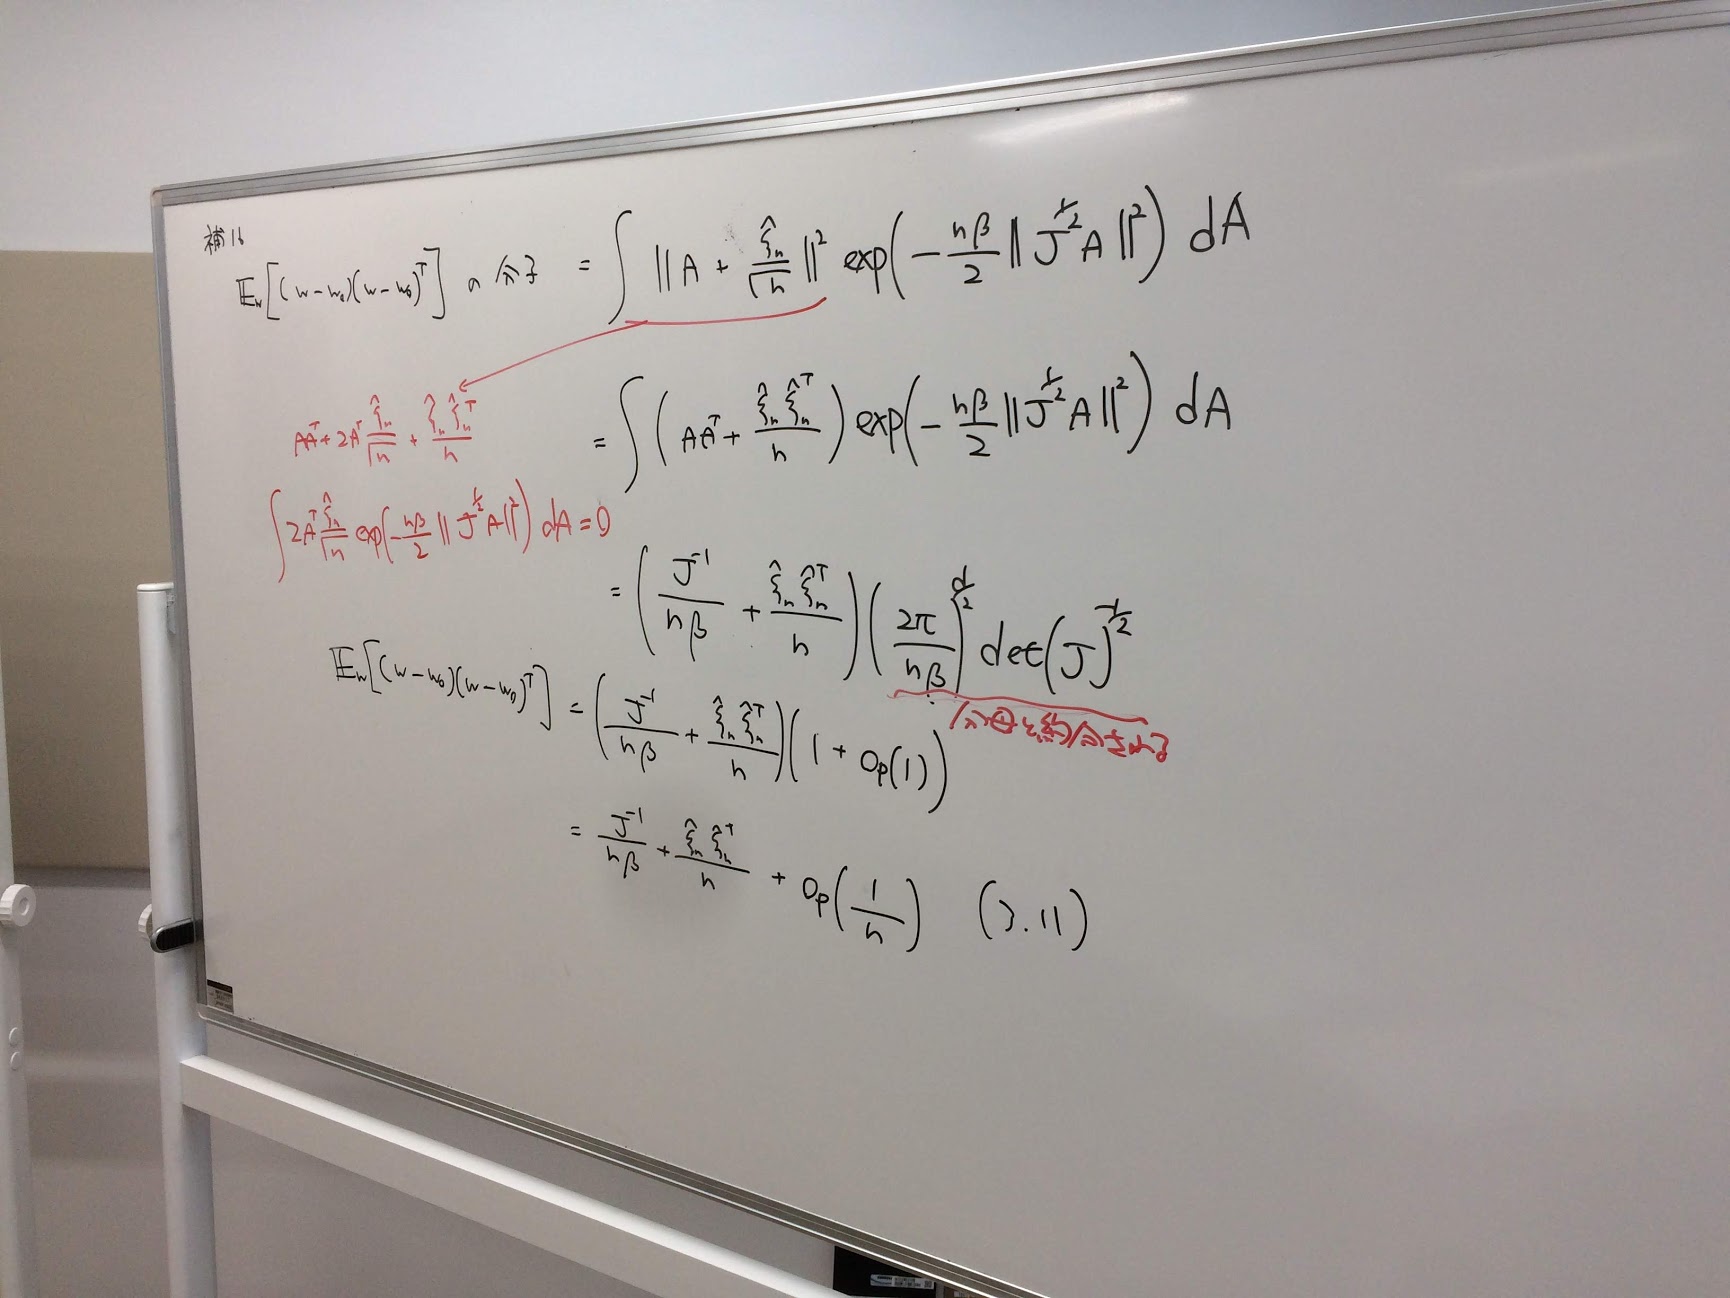 補16
𝔼w[(w-w₀)(w-w₀)ᵀ] の分子 = ∫ ||A + ξ̂ₙ/√n||² exp(-nβ/2 ||J^{1/2}A||²) dA
AAᵀ+2Aᵀ ξ̂ₙ/√n + ξ̂ₙξ̂ₙᵀ/n
= ∫ (AAᵀ + ξ̂ₙξ̂ₙᵀ/n) exp(-nβ/2 ||J^{1/2}A||²) dA
∫ 2Aᵀ ξ̂ₙ/√n exp(-nβ/2 ||J^{1/2}A||²) dA = 0
= (J⁻¹/nβ + ξ̂ₙξ̂ₙᵀ/n) (2π/nβ)^{d/2} det(J)^{-1/2}
分母と約分される
𝔼w[(w-w₀)(w-w₀)ᵀ] = (J⁻¹/nβ + ξ̂ₙξ̂ₙᵀ/n)(1 + oₚ(1))
= J⁻¹/nβ + ξ̂ₙξ̂ₙᵀ/n + oₚ(1/n) (3.11)